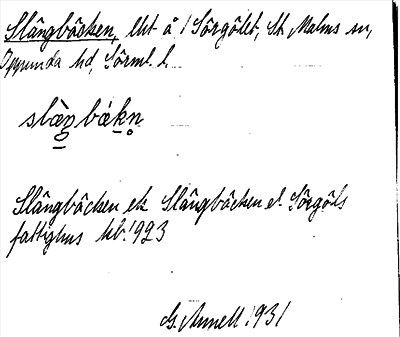 Slångbäcken, lht å / Sörgölet, St. Malms sn,
Oppunda hd, Sörml. l.
slàŋbǽkn̥
Slångbäcken el. Slångbäcken el. Sörgöls
fattighus hb. 1923
G. Annell 1931